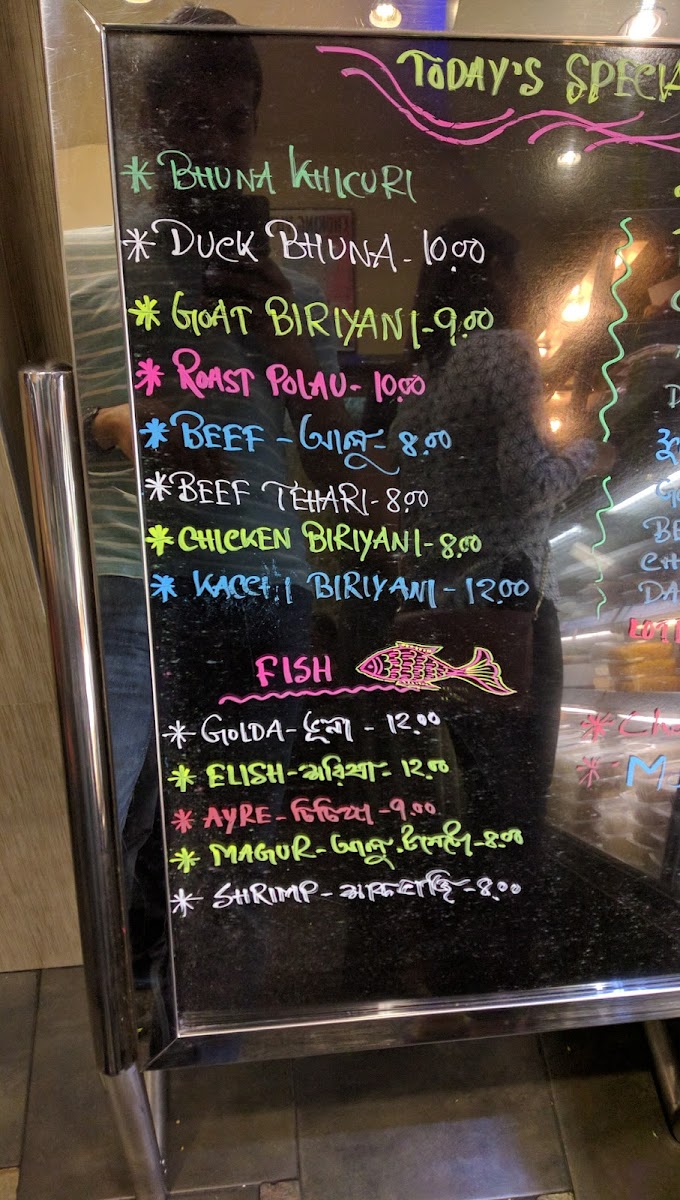 TODAY'S SPECIA
* BHUNA KHICURI
* DUCK BHUNA - 10.00
* GOAT BIRIYANI - 9.00
* ROAST POLAU - 10.00
* BEEF - আলু - 8.00
* BEEF TEHARI - 8.00
* CHICKEN BIRIYANI - 8.00
* KACCHI BIRIYANI - 12.00
FISH
* GOLDA - ভূনা - 12.00
* ELISH - সরিষা - 12.00
* AYRE - চিচিঙ্গা - 9.00
* MAGUR - আলু - 8.00
* SHRIMP - 8.00
BE
CH
DA